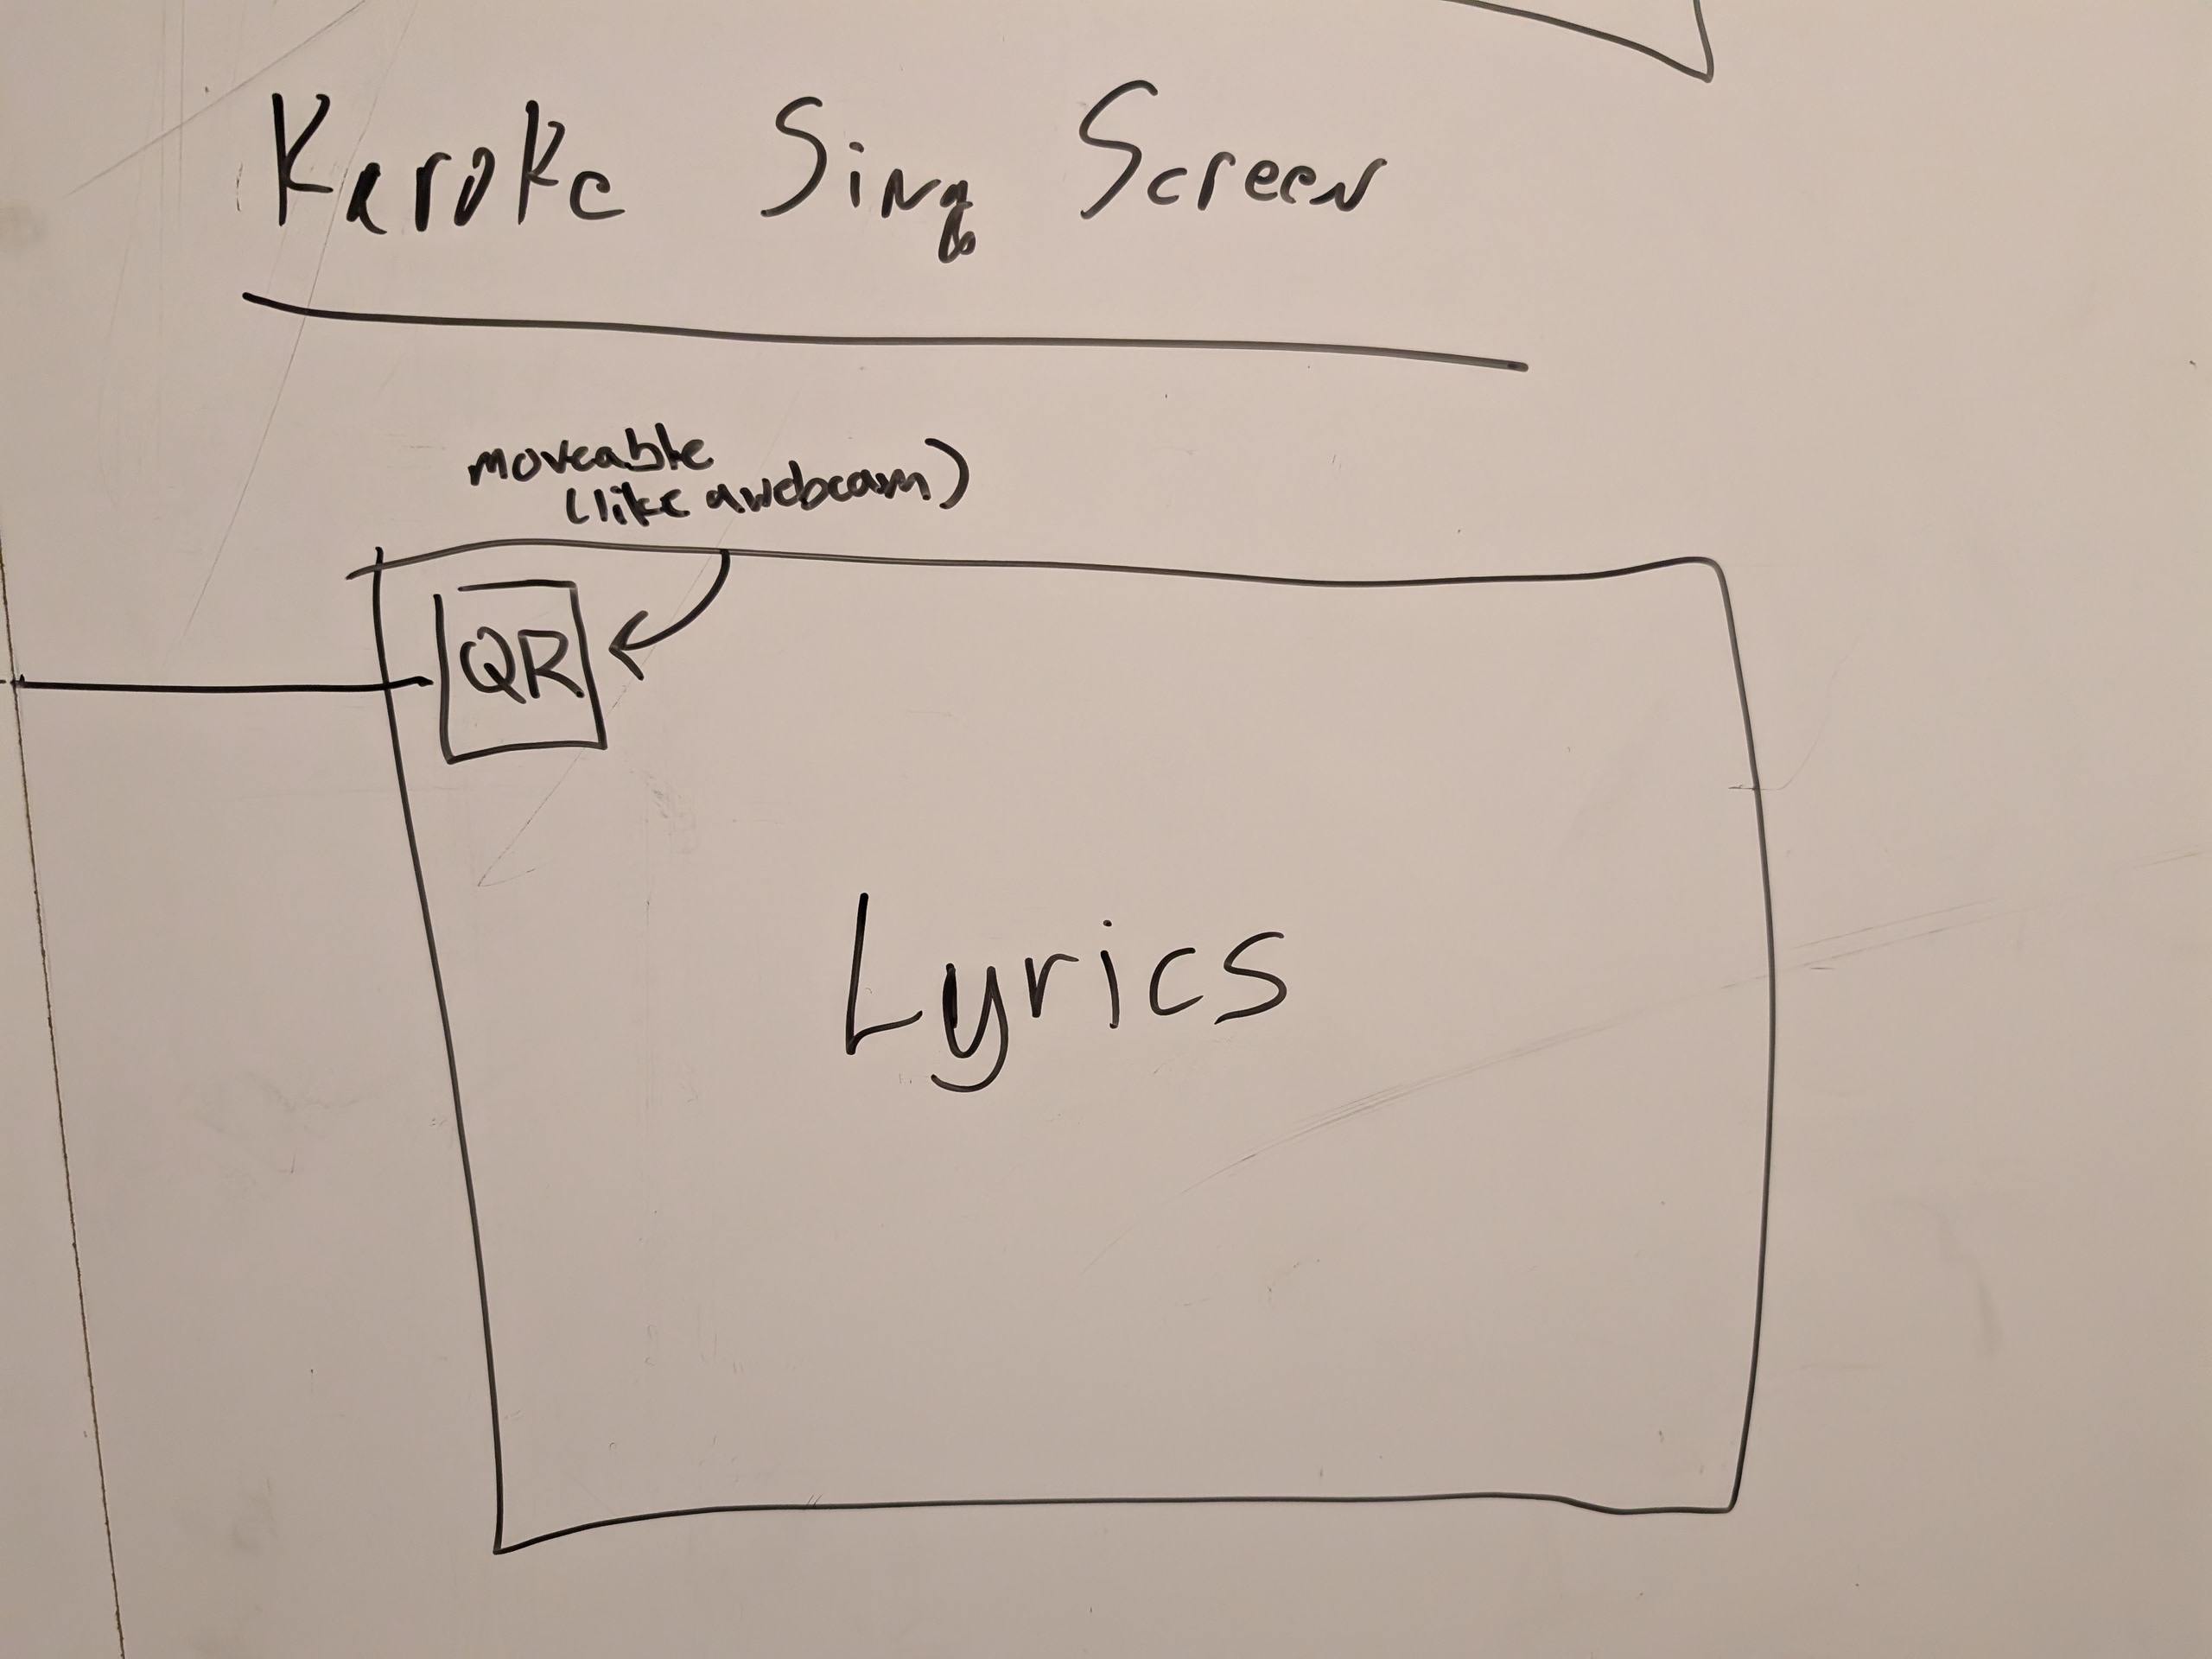 Karoke Sing Screen
moveable
(like a webcam)
QR
Lyrics